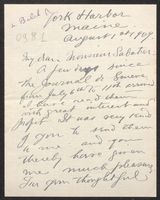 York Harbor
Maine
August 1st 1909
My dear Monsieur Sabatier
A few days since
the Journal de Genève
from July 6th to 11th arrived
I have read them
with great interest and
profit. It was very kind
of you to send them
to me and you
thereby have given
me much pleasure
I'm your thoughtful